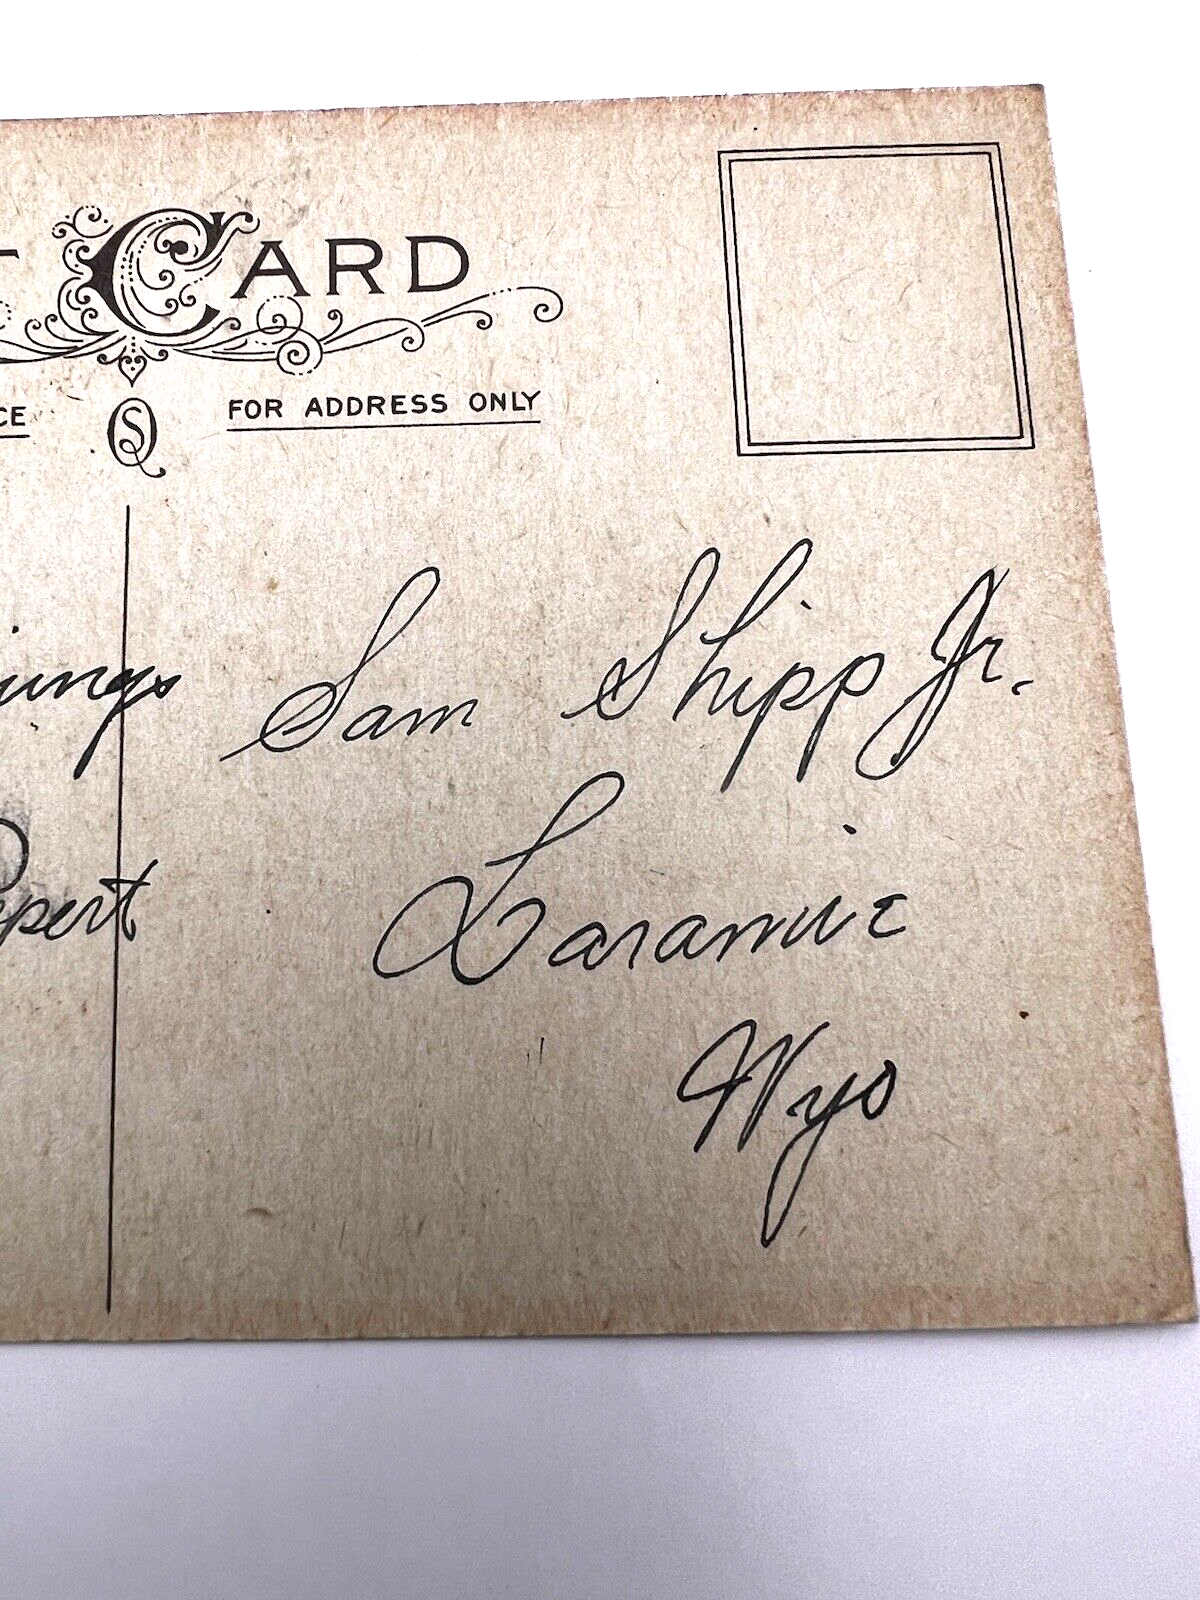 T CARD
CE
SQ
FOR ADDRESS ONLY
Sam Shipp Jr.
Laramie
Wyo